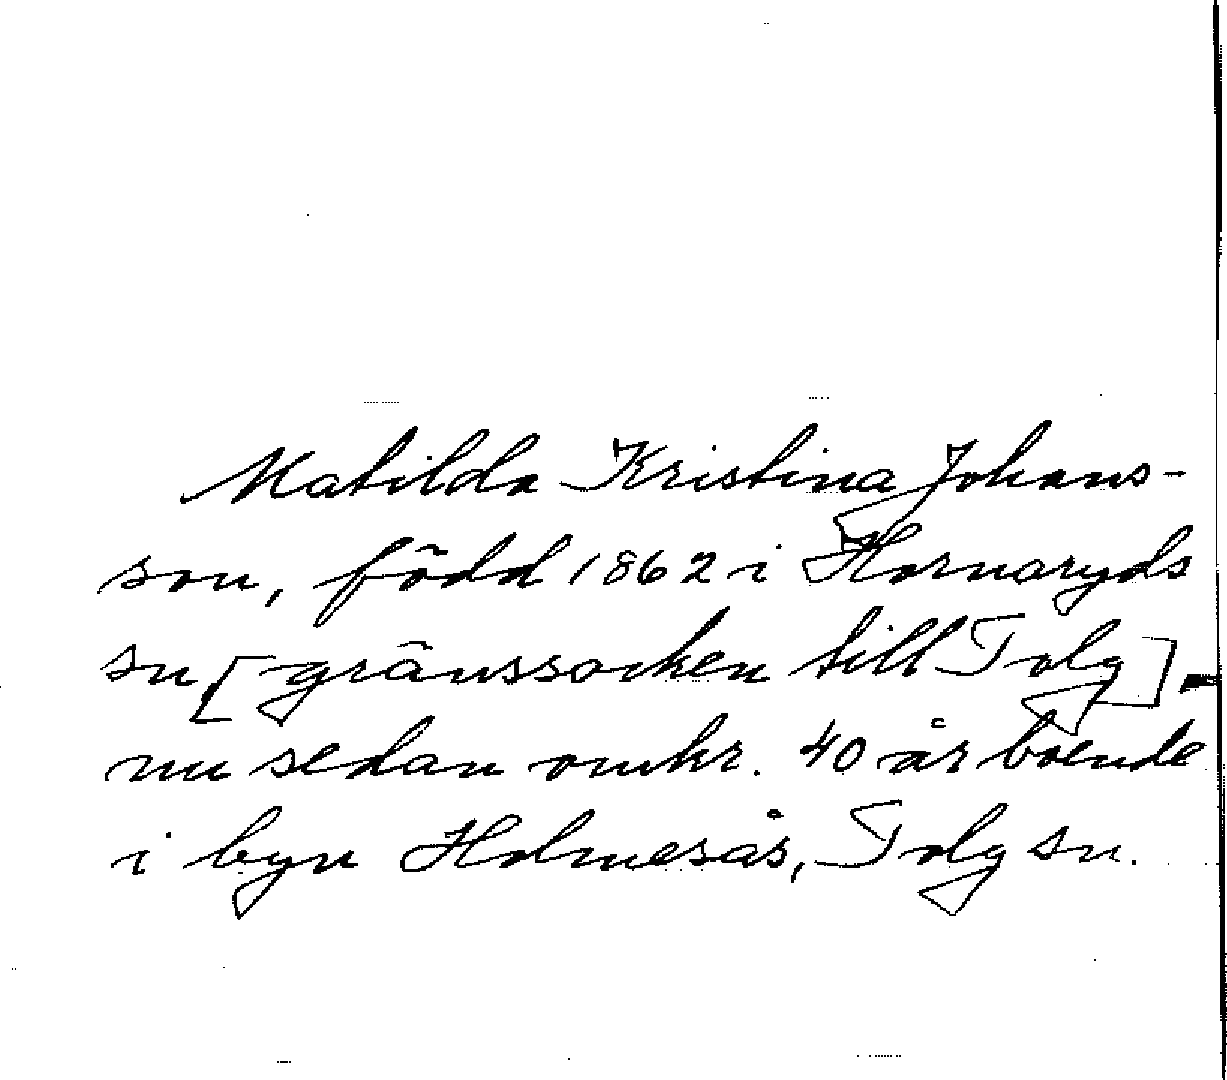 Matilda Kristina Johans-
son, född 1862 i Hornaryds
sn [gränssocken till Tolg] -
nu sedan omkr. 40 år boende
i byn Holmesås, Tolg sn.